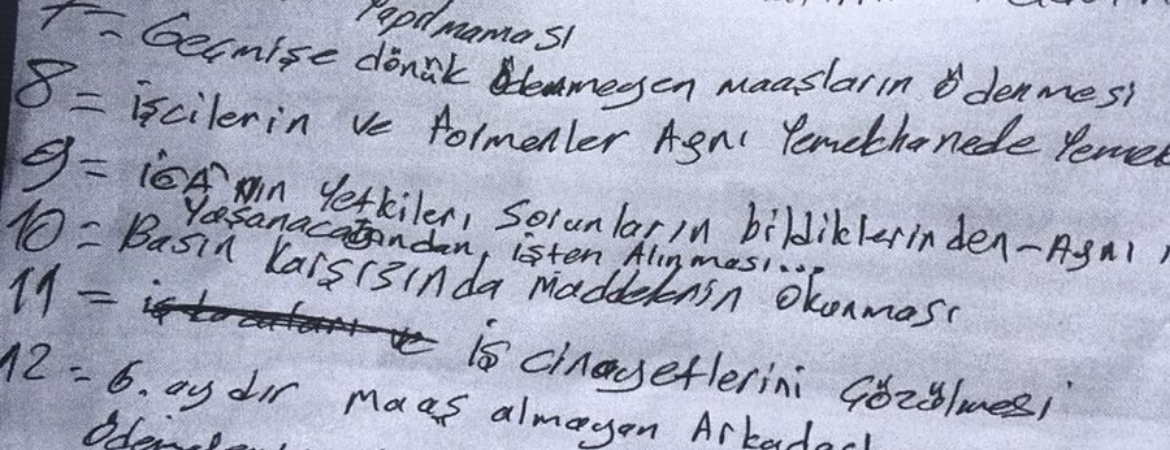 Yapılmaması
7= Geçmişe dönük ödenmeyen maaşların ödenmesi
8= işcilerin ve formenler Aynı Yemekhanede Yemek
9= iGA'nın Yetkileri Sorunların bildiklerinden-Aynı
Yaşanacağından, işten Alınması...
10= Basın karşısında maddelerin okunması
11= iş cinayetlerini Çözülmesi
12= 6. aydır maaş almayan Arkadaşl